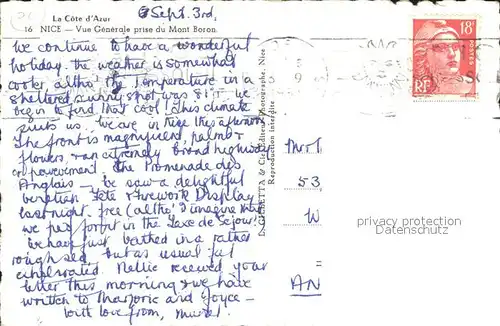 La Côte d'Azur
Sept. 3rd.
16 NICE — Vue Générale prise du Mont Boron.
We continue to have a wonderful
holiday. The weather is somewhat
cooler altho' the temperature in a
sheltered sunny spot was 81°! We
begin to find that cool! This climate
suits us. We are in Nice this afternoon.
The front is magnificent, palms &
flowers, & an extremely broad highway
or pavement. The Promenade des
Anglais — we saw a delightful
Venetian Fete & Firework Display
last night. Free (altho' I imagine that
we pay for it in the Taxe de Sejour)
We have just bathed in a rather
rough sea, but as usual felt
exhilarated. Nellie received your
letter this morning & we have
written to Marjorie and Joyce —
with love from, Muriel.
Editeur Photographe, Nice
Reproduction interdite
18F
POSTES
RF
53
W
AN
privacy protection
watermark